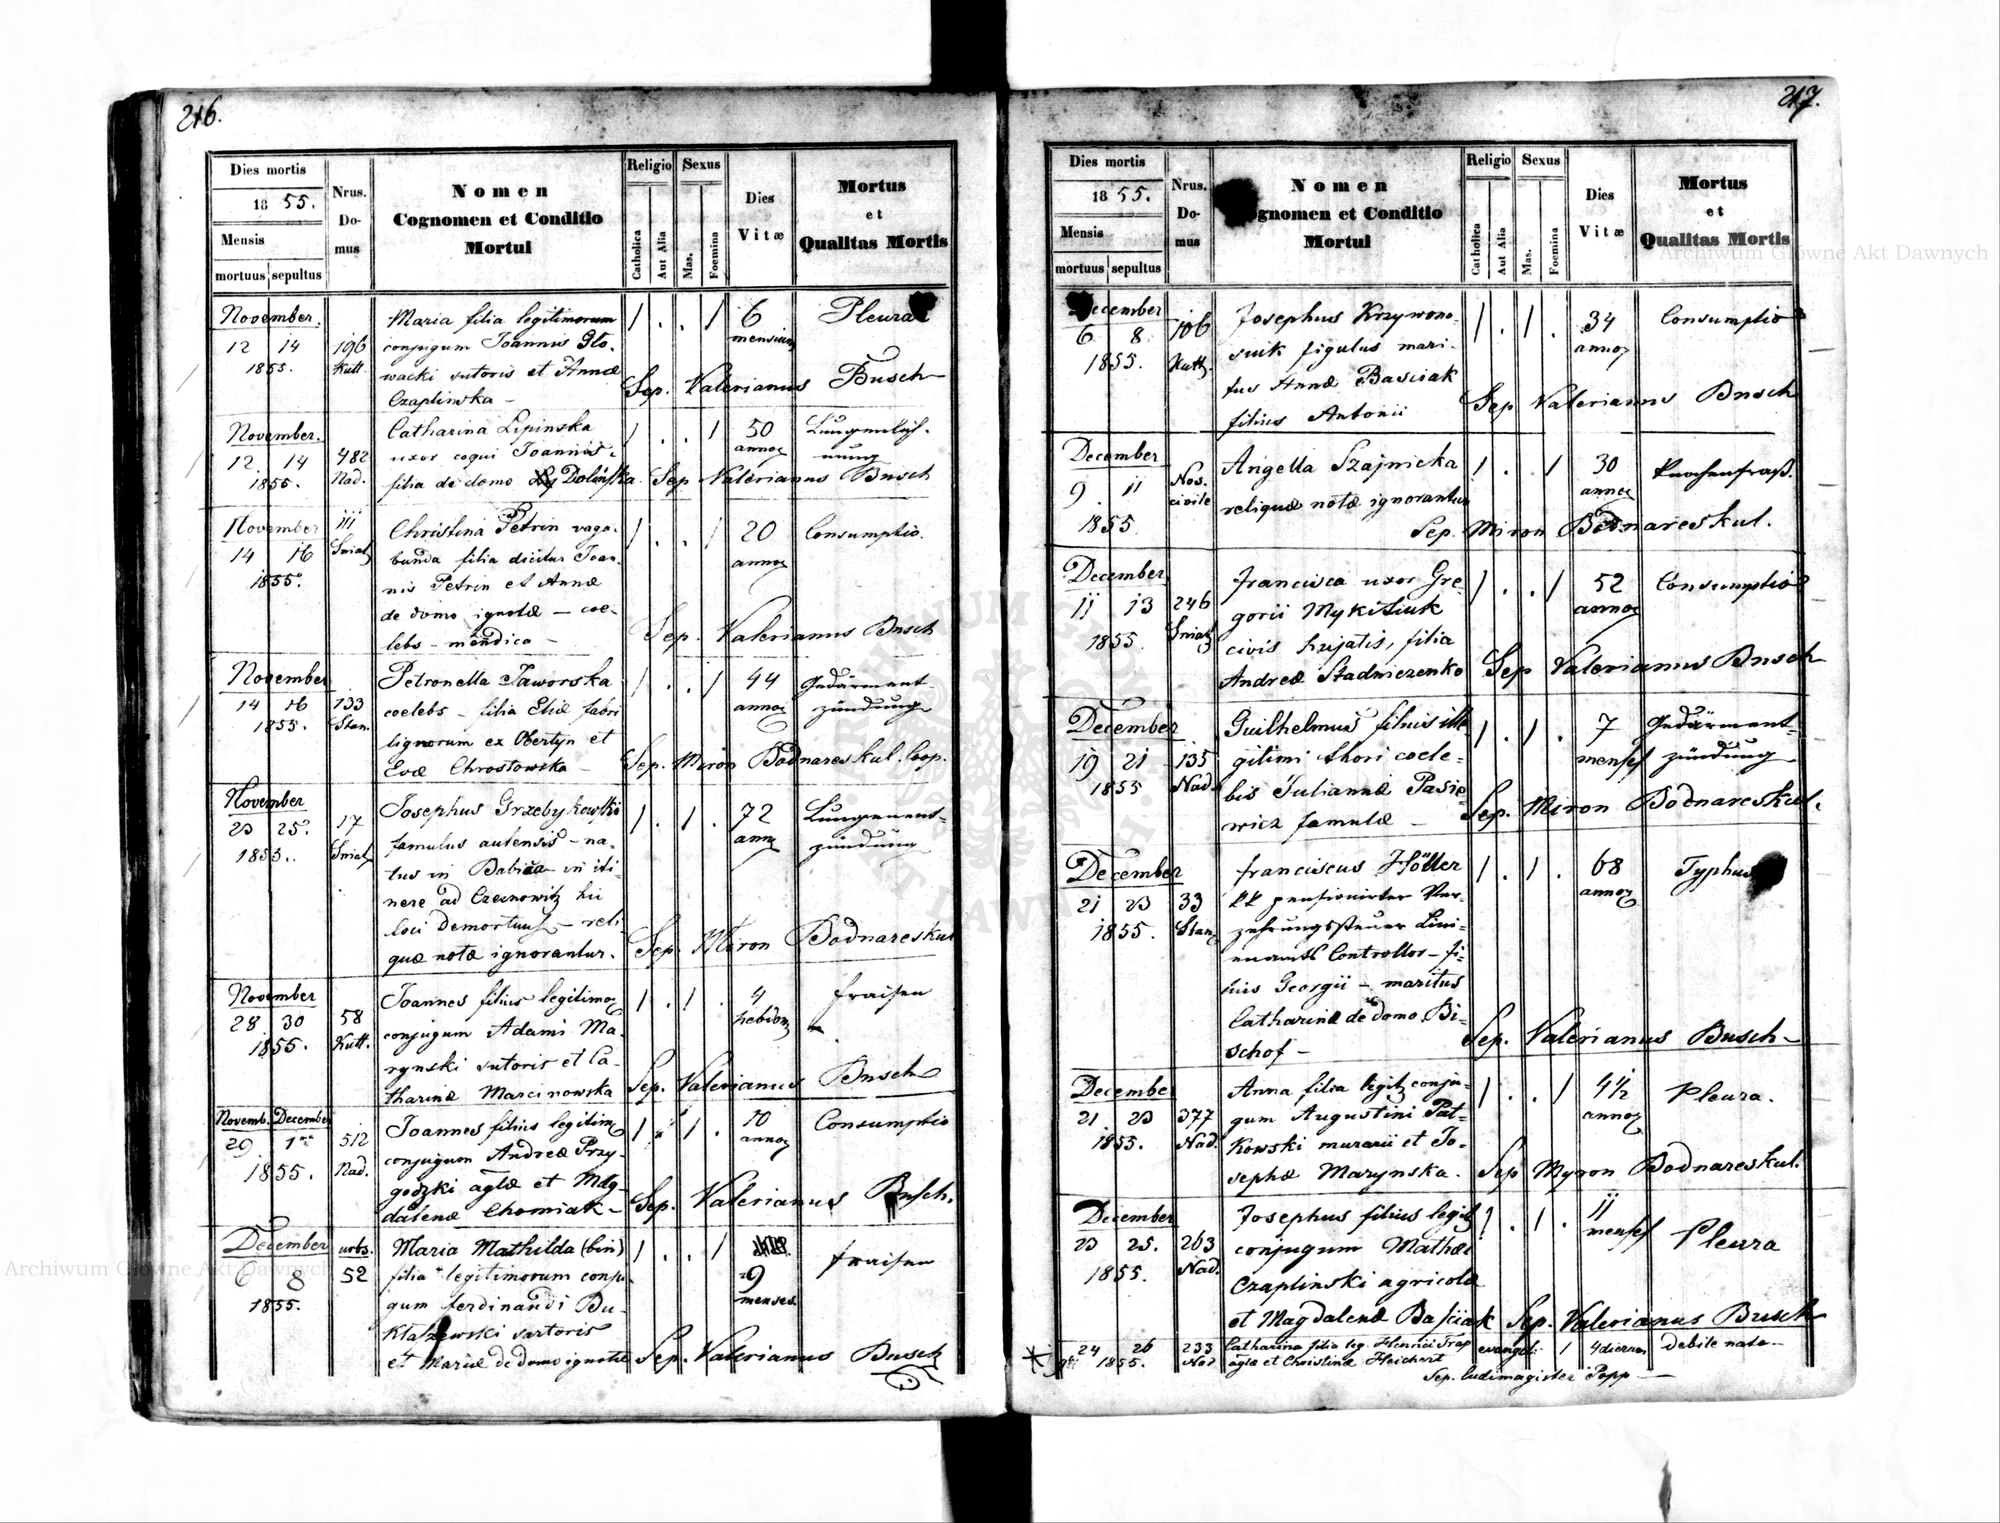 216.
Dies mortis
1855.
Mensis
mortuus sepultus
Nrus. Domus
Nomen
Cognomen et Conditio
Mortui
Religio
Catholica
Aut Alia
Sexus
Mas.
Foemina
Dies Vitæ
Mortus
et
Qualitas Mortis
November.
12 14
1855.
196
Kutt.
Maria filia legitimorum
conjugum Joannis Glo-
wacki sutoris et Annæ
Czaplinska –
1 . . 1
6
mensium
Pleura
Sep. Valerianus Busch
November.
12. 14
1855.
482
Nad.
Catharina Lipinska
uxor coqui Joannis
filia de domo Dolińska
1 . . 1
50
annor
Sep Valerianus Busch
November
14 16
1855.
111
Sniat
Christina Petrin vaga-
bunda filia dicitur Joan-
nis Petrin et Annæ
de domo ignotæ – coe-
lebs – mendica –
1 . . 1
20
annor
Consumptio.
Sep. Valerianus Busch
November
14 16
1855.
133
Stan.
Petronella Jaworska
coelebs – filia Eliæ fabri
lignorum ex Obertyn et
Evæ Chrostowska –
1 . . 1
44
annor
Gedärment-
zündung
Sep. Miron Bodnareskul. Coop.
November
23 25.
1855.
17
Sniat
Josephus Grzebykowski
famulus aulensis – na-
tus in Babice in iti-
nere ad Czernowitz hii
loci demortuus – reli
quæ notæ ignorantur.
1 . 1 .
72
ann
Lungenent-
zündung
Sep. Miron Bodnareskul
November
28. 30
1855.
58
Kutt.
Joannes filius legitimor
conjugum Adami Ma-
rynski sutoris et Ca-
tharinæ Marcinowska
1 . 1 .
4
hebdom
Fraisen
Sep. Valerianus Busch
Novemb. December
29 1
1855.
512
Nad.
Joannes filius legitim
conjugum Andreæ Przy-
godzki aglæ et Mag-
dalenæ Chomiak –
1 . 1 .
10
annor
Consumptio
Sep. Valerianus Busch.
December
6 8
1855.
urbs.
52
Maria Mathilda (bin)
filia legitimorum conju-
gum Ferdinandi Bu-
klaszewski sartoris
et Mariæ de domo ignotæ
1 . . 1
9
menses.
Fraisen
Sep. Valerianus Busch
217.
Dies mortis
1855.
Mensis
mortuus sepultus
Nrus. Domus
Nomen
Cognomen et Conditio
Mortui
Religio
Catholica
Aut Alia
Sexus
Mas.
Foemina
Dies Vitæ
Mortus
et
Qualitas Mortis
December
6 8
1855.
106
Kutt.
Josephus Krzywono-
siuk figulus mari-
tus Annæ Basciak
filius Antonii
1 . 1 .
34
annor
Consumptio
Sep Valerianus Busch
December
9. 11
1855
Nos.
civile
Angella Szajnicka
reliquæ notæ ignorantur
1 . . 1
30
annor
Knochenfraß.
Sep. Miron Bodnareskul.
December
11 13
1855
246
Sniat
Francisca uxor Gre-
gorii Mykitiuk
civis hujatis, filia
Andreæ Stadniczenko
1 . . 1
52
annor
Consumptio
Sep Valerianus Busch
December
19 21
1855
135
Nad.
Guilhelmus filius ille
gitimi thori coele-
bis Juliannæ Pasie-
wicz famulæ –
1 . 1 .
7
menses
Gedärment-
zündung
Sep. Miron Bodnareskul.
December
21 23
1855.
33
Stan
Franciscus Höller
kk pensionirter Ver-
zehrungssteuer Lini-
enamts Controllor – fi-
lius Georgii – maritus
Catharinæ de domo Bi-
schof –
1 . 1 .
68
annor
Typhus
Sep. Valerianus Busch –
December
21 23
1855.
377
Nad.
Anna filia legit conju-
gum Augustini Pat-
kowski murarii et Jo-
sephæ Marynska.
1 . . 1
4½
annor
Pleura.
Sep Myron Bodnareskul.
December
23 25.
1855.
263
Nad.
Josephus filius legit
conjugum Mathæi
Czaplinski agricolæ
et Magdalenæ Basciak
1 . 1 .
11
menses
Pleura
Sep. Valerianus Busch
24 26
1855.
233
Nad
Catharina filia leg. Henrici Trap
aglæ et Christinæ Heichert
evangel. 1
4 dierum
Debile nata –
Sep. ludimagister Popp –
Archiwum Główne Akt Dawnych
Archiwum Główne Akt Dawnych